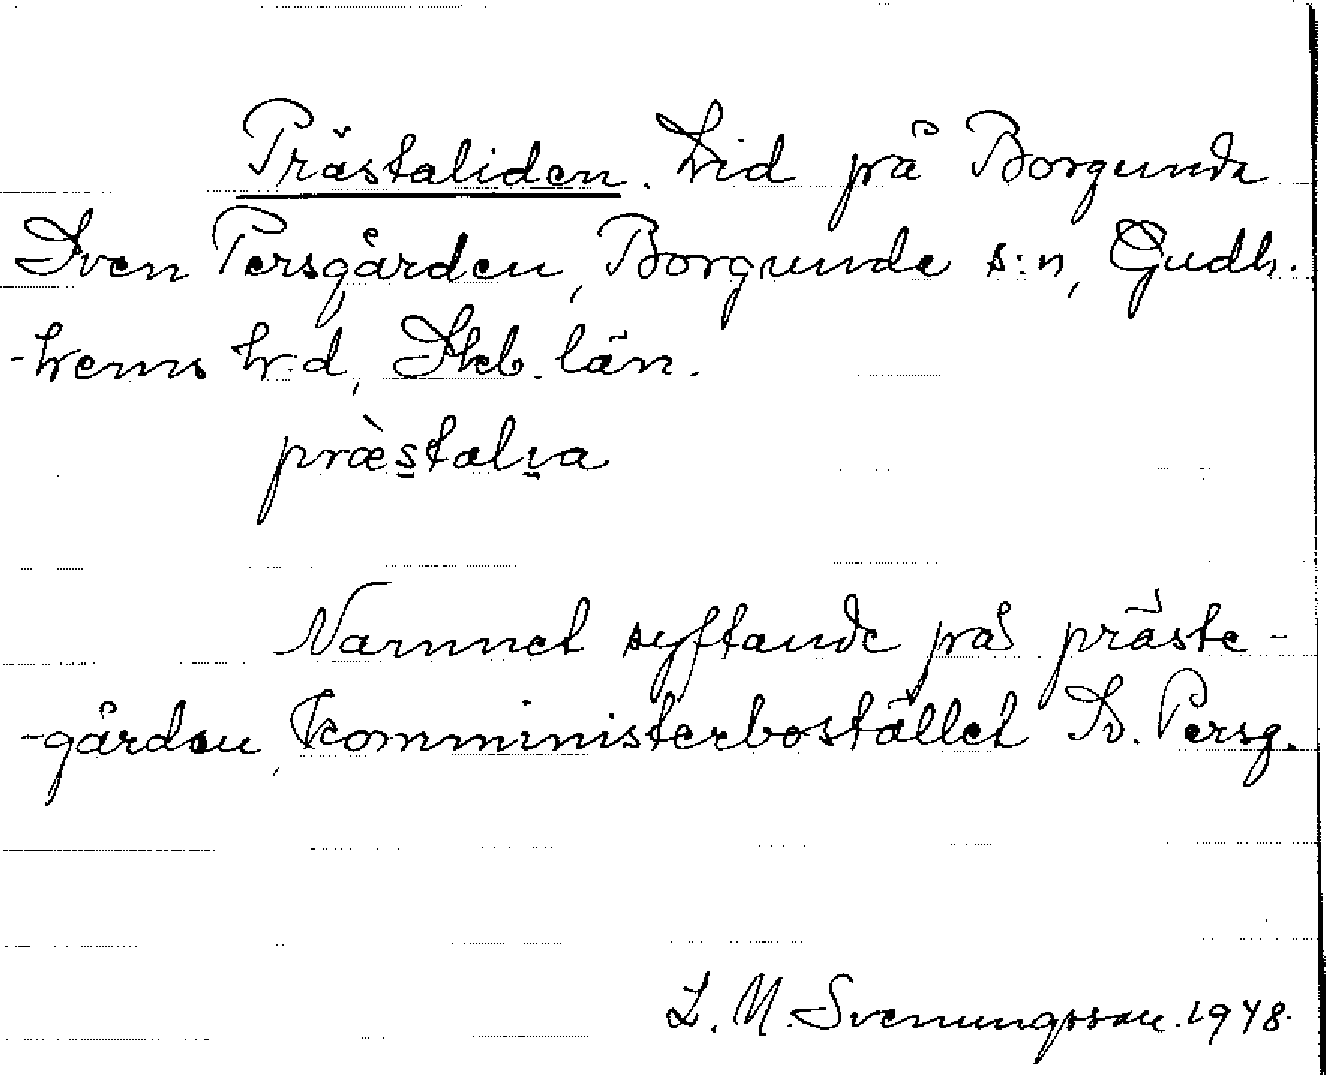 Prästaliden. Lid på Borgunda
Sven Persgården, Borgunda s:n, Gudh.
-hems h-d, Skb. län.
præ̀s̱talı̭a
Namnet syftande på präste-
-gården, Komministerbostället Sv. Persg.
L. M. Svenungsson. 1948.